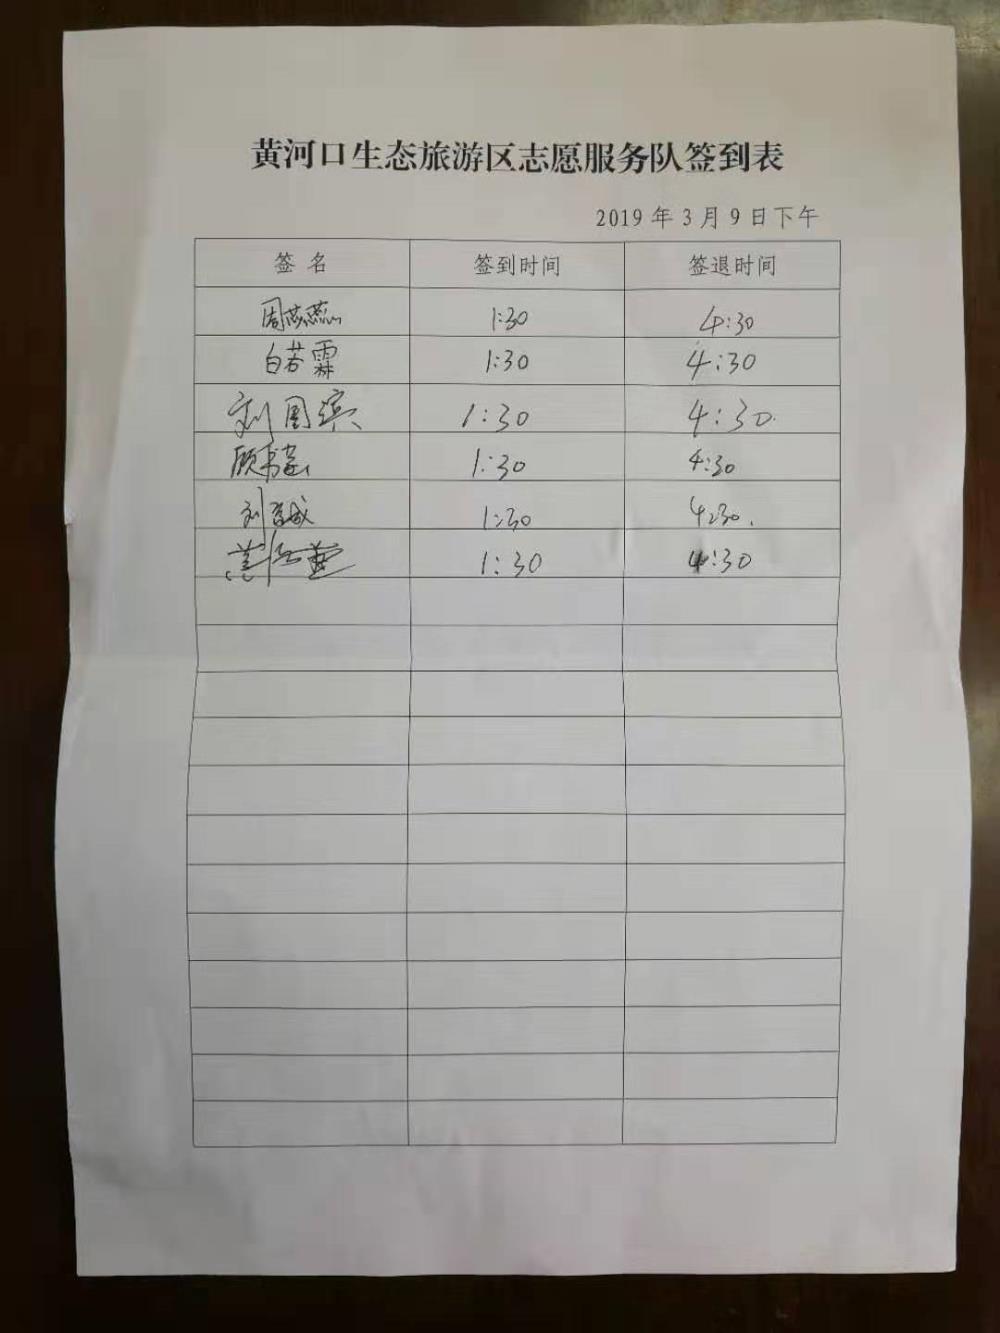 黄河口生态旅游区志愿服务队签到表
2019年3月9日下午
签 名 签到时间 签退时间
周燕燕 1:30 4:30
白若霖 1:30 4:30
刘国滨 1:30 4:30.
顾书 1:30 4:30
刘 成 1:30 4:30.
1:30 4:30